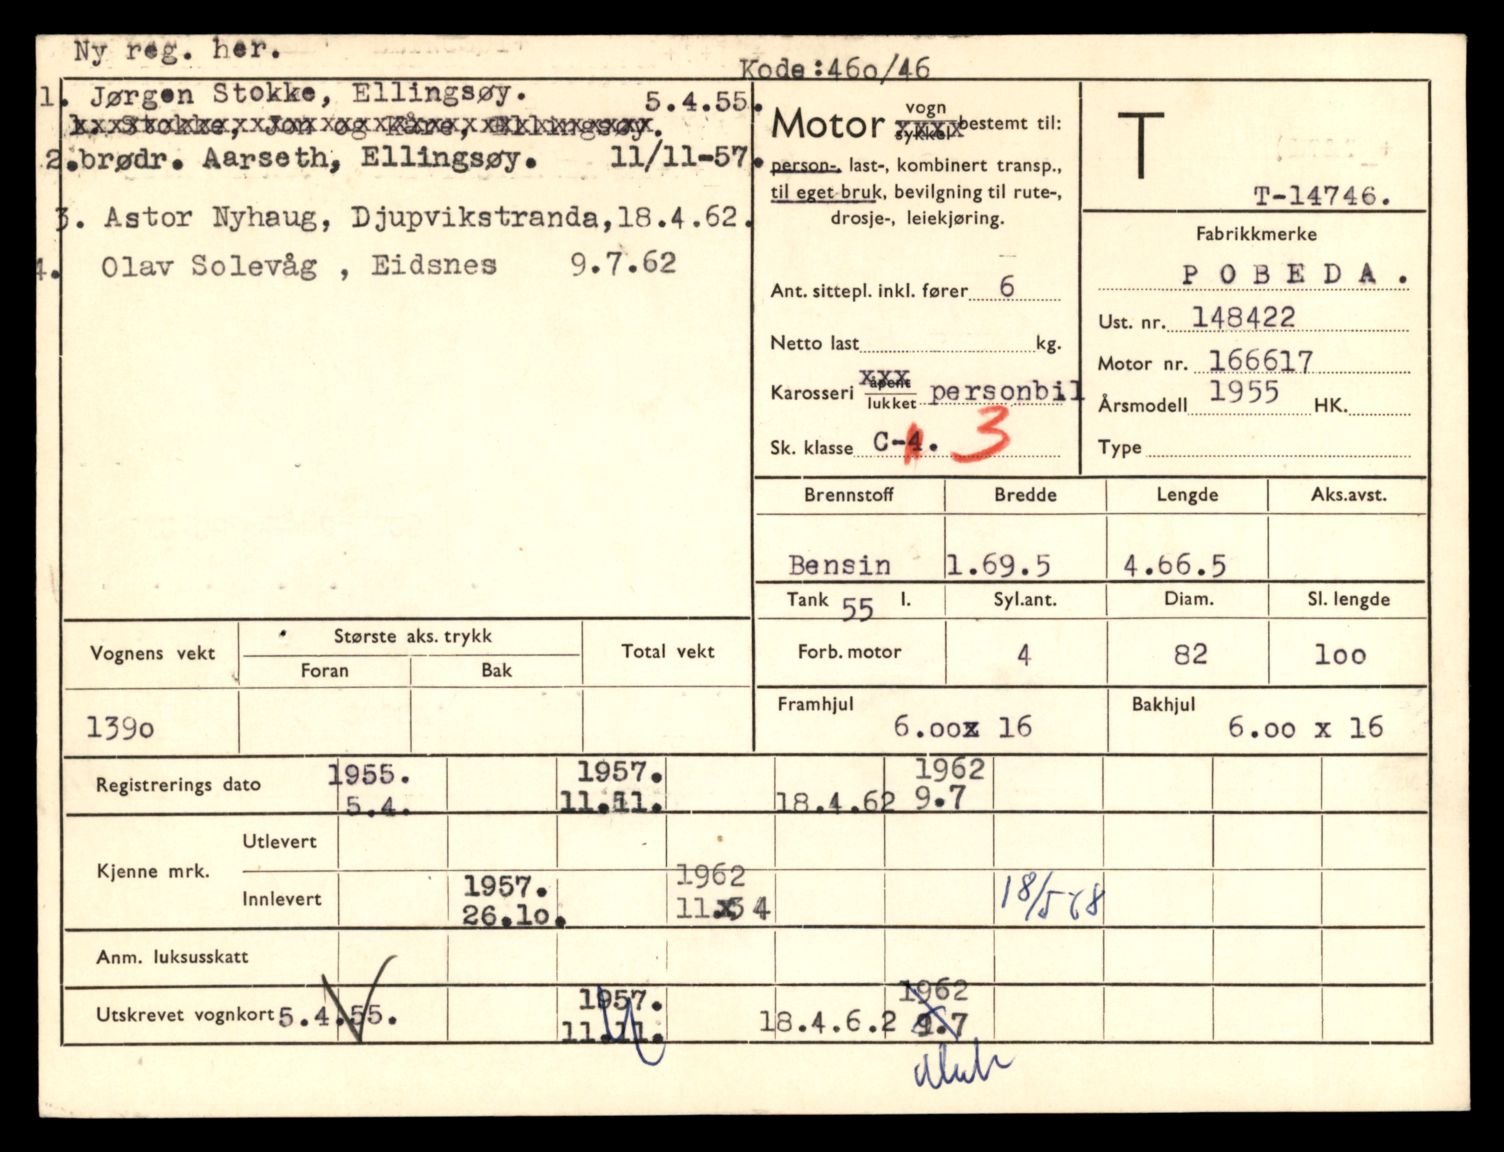 Ny reg. her.
Kode:46o/46
1. Jørgen Stokke, Ellingsøy. 5.4.55.
Stokke, Jon og Kåre, Ellingsøy.
2.brødr. Aarseth, Ellingsøy. 11/11-57.
3. Astor Nyhaug, Djupvikstranda,18.4.62.
4. Olav Solevåg , Eidsnes 9.7.62
Motor vogn sykkel bestemt til:
person-, last-, kombinert transp.,
til eget bruk, bevilgning til rute-,
drosje-, leiekjøring.
Ant. sittepl. inkl. fører 6
Netto last kg.
Karosseri åpent lukket personbil
Sk. klasse C-4. 3
T
T-14746.
Fabrikkmerke
P O B E D A .
Ust. nr. 148422
Motor nr. 166617
Årsmodell 1955 HK.
Type
Brennstoff Bredde Lengde Aks.avst.
Bensin 1.69.5 4.66.5
Tank 55 l. Syl.ant. Diam. Sl. lengde
Forb. motor 4 82 1oo
Framhjul 6.oox 16 Bakhjul 6.oo x 16
Vognens vekt Største aks. trykk Total vekt
Foran Bak
139o
Registrerings dato 1955. 1957. 1962
5.4. 11.11. 18.4.62 9.7
Kjenne mrk. Utlevert
Innlevert 1957. 1962 18/5-68
26.1o. 11. 4
Anm. luksusskatt
Utskrevet vognkort 5.4.55. 1957. 18.4.6.2 1962
11.11. 9.7